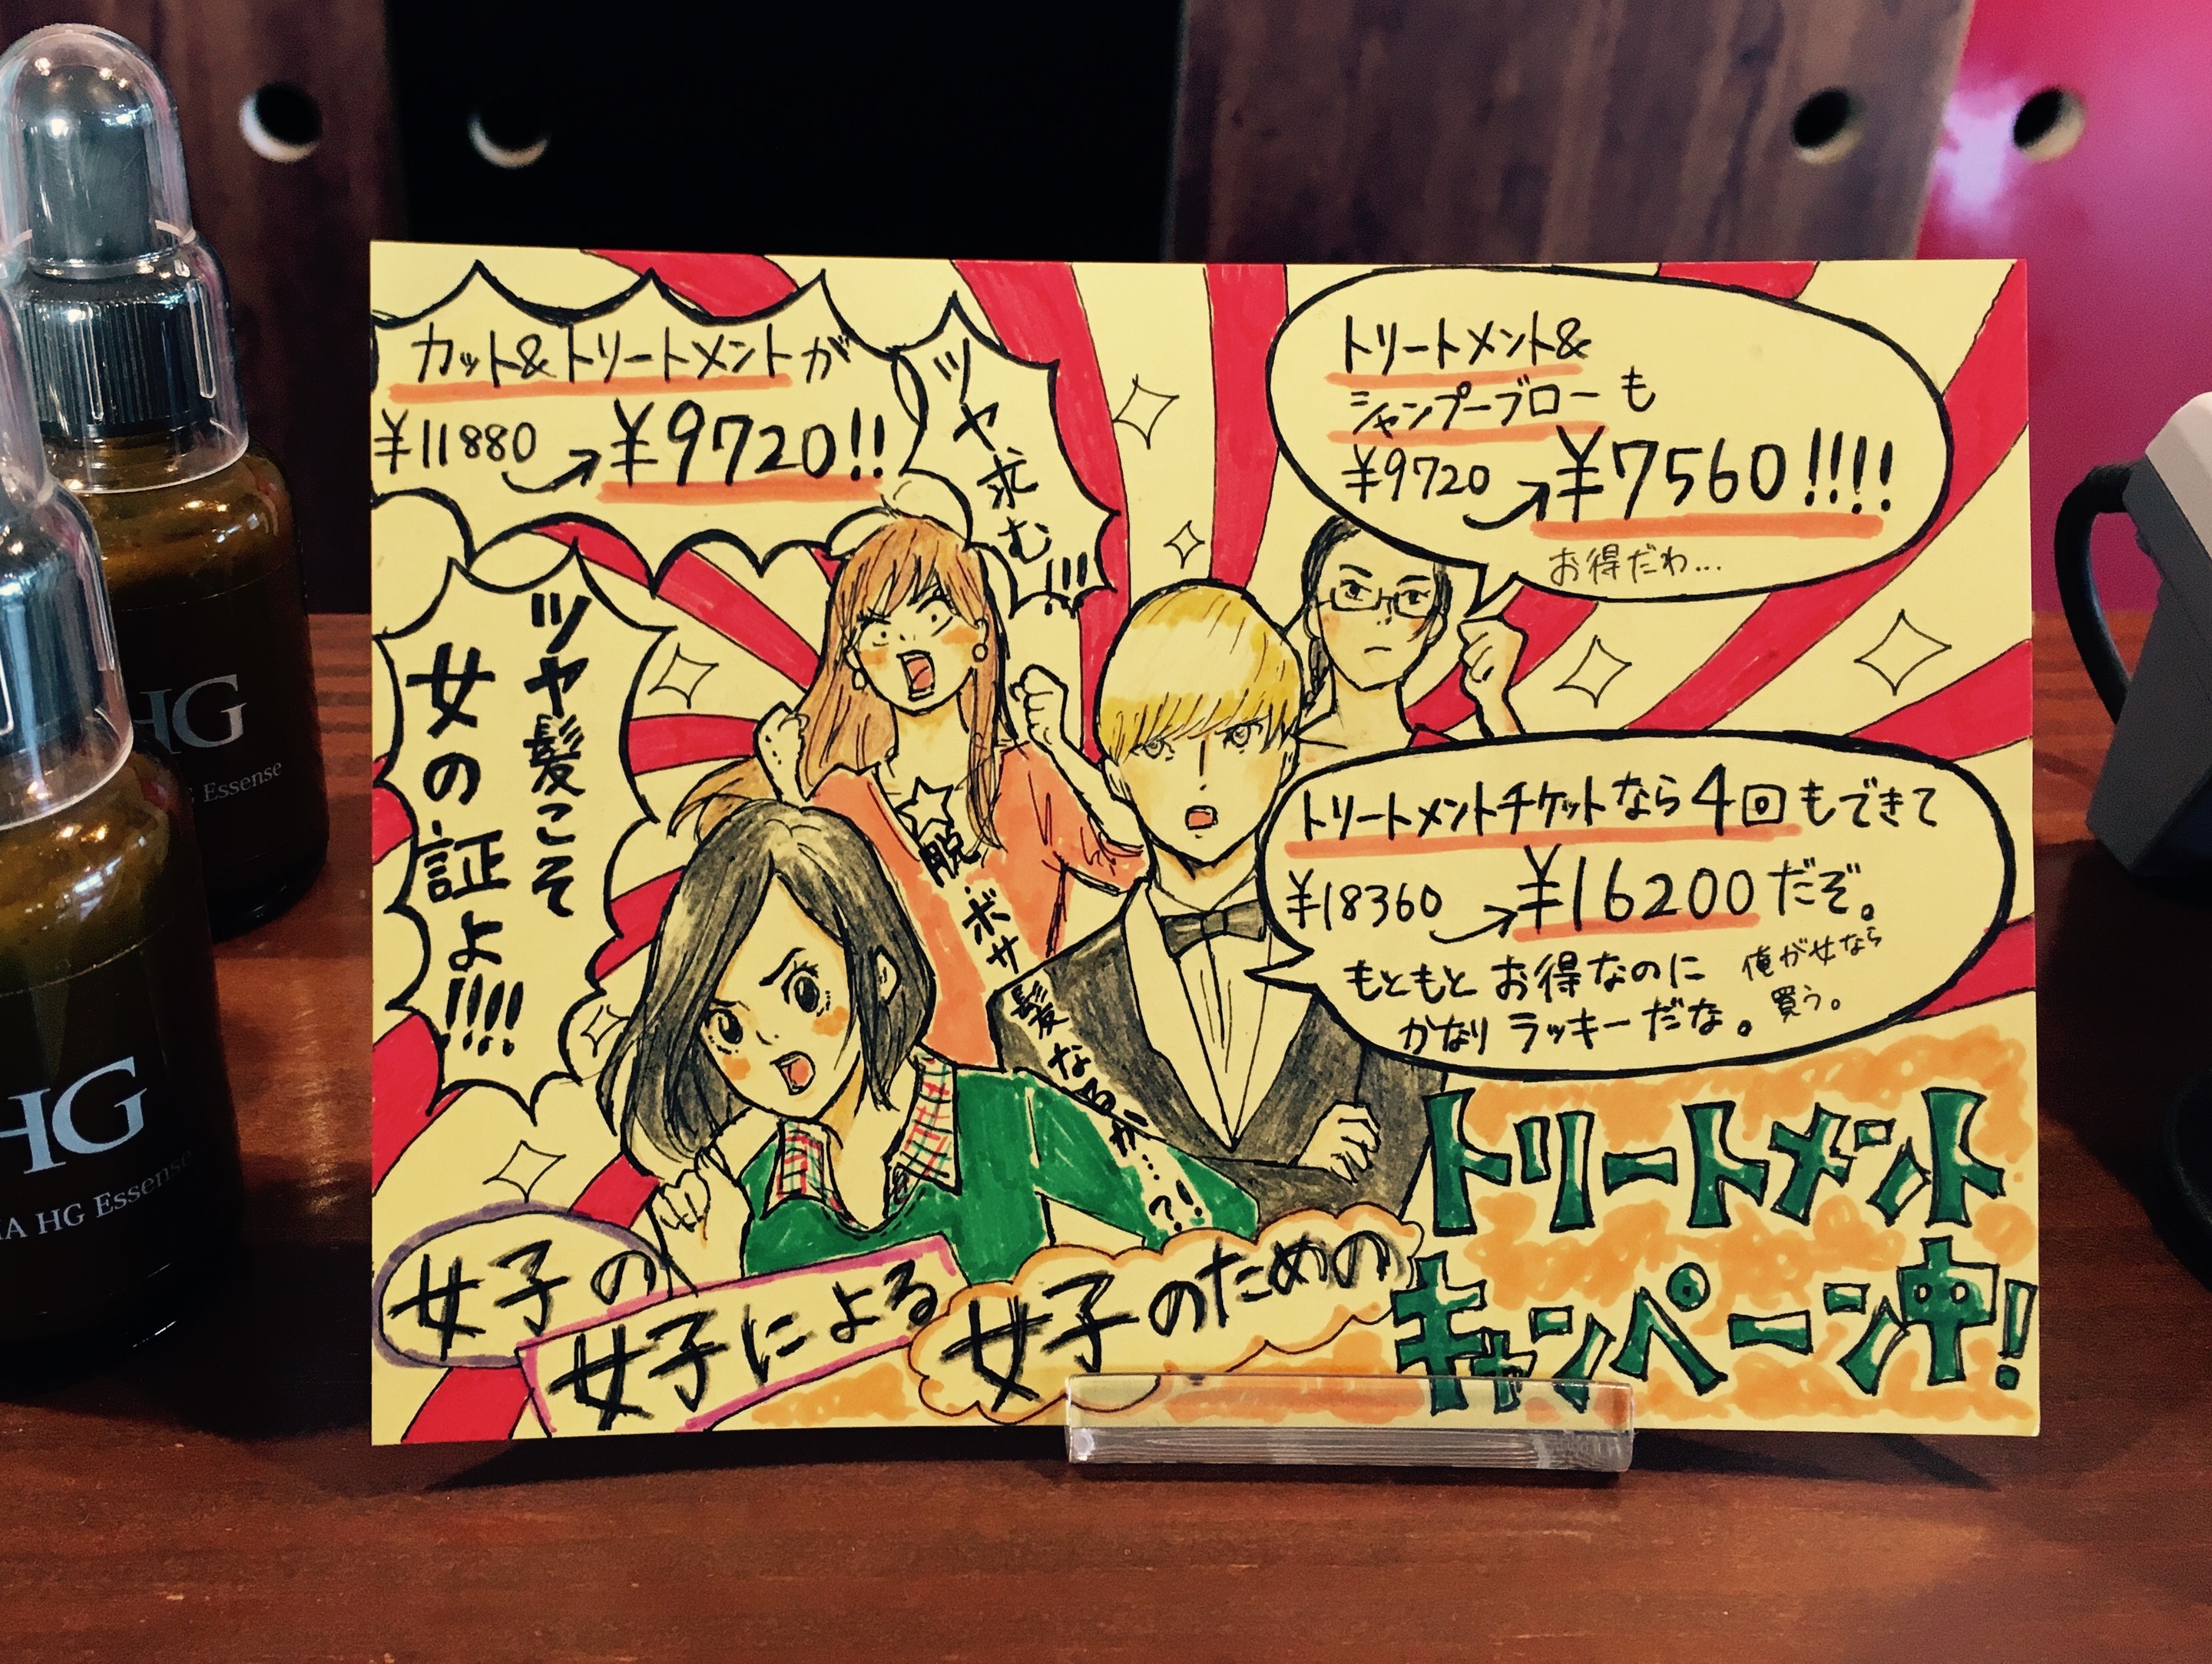 カット&トリートメントが
¥11880→¥9720!!
ツヤ求む!!!
トリートメント&
シャンプーブローも
¥9720→¥7560!!!!
お得だわ...
ツヤ髪こそ
女の証よ!!!!
トリートメントチケットなら4回もできて
¥18360→¥16200だぞ。
もともとお得なのに
かなりラッキーだな。
俺が女なら
買う。
☆脱ボサ髪な
女子の
女子による
女子のための
トリートメント
キャンペーン中!
HG
Essense
HG
HG Essense